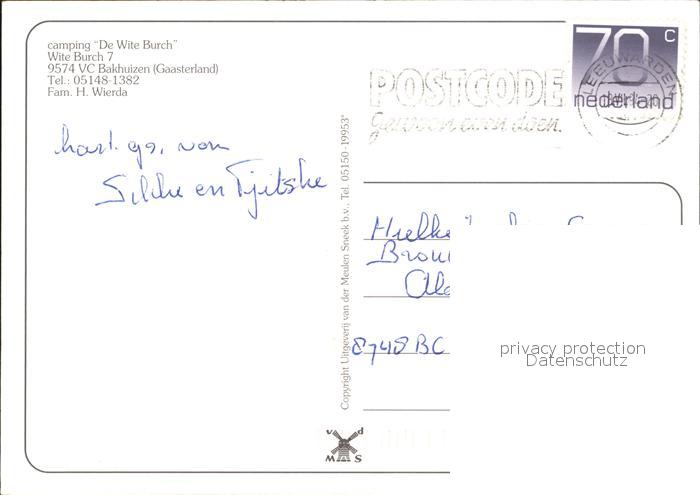 camping "De Wite Burch"
Wite Burch 7
9574 VC Bakhuizen (Gaasterland)
Tel.: 05148-1382
Fam. H. Wierda
70 c
nederland
LEEUWARDEN
POSTCODE
gewoon even doen.
hart. gr. van
Silke en Tjitske
Copyright Uitgeverij van der Meulen Sneek b.v., Tel. 05150-19953*
8748 BC
v d
M S
privacy protection
Datenschutz